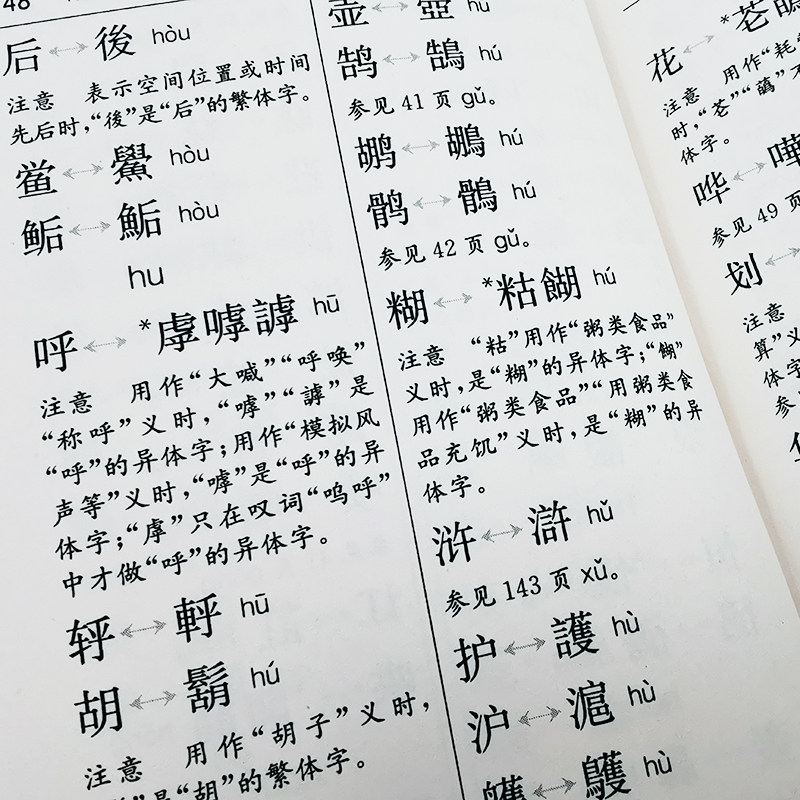 48
后 ↔ 後 hòu
注意 表示空间位置或时间
先后时,“後”是“后”的繁体字。
鲎 ↔ 鱟 hòu
鲘 ↔ 鮜 hòu
hu
呼 ↔ *虖嘑謼 hū
注意 用作“大喊”“呼唤”
“称呼”义时,“嘑”“謼”是
“呼”的异体字;用作“模拟风
声等”义时,“嘑”是“呼”的异
体字;“虖”只在叹词“呜呼”
中才做“呼”的异体字。
轷 ↔ 軤 hū
胡 ↔ 鬍 hú
注意 用作“胡子”义时,
”是“胡”的繁体字。
壶 ↔ 壺 hú
鹄 ↔ 鵠 hú
参见 41 页 gǔ。
鹕 ↔ 鶘 hú
鹘 ↔ 鶻 hú
参见 42 页 gǔ。
糊 ↔ *粘餬 hú
注意 “粘”用作“粥类食品”
义时,是“糊”的异体字;“餬”
用作“粥类食品”“用粥类食
品充饥”义时,是“糊”的异
体字。
浒 ↔ 滸 hǔ
参见 143 页 xǔ。
护 ↔ 護 hù
沪 ↔ 滬 hù
鳠 ↔ 鱯 hù
花 ↔ *苍
注意 用作“耗
时,“苍”“蘤”不
体字。
哗 ↔ 嘩
参见 49 页
划 ↔
注意
算”义
体字
参